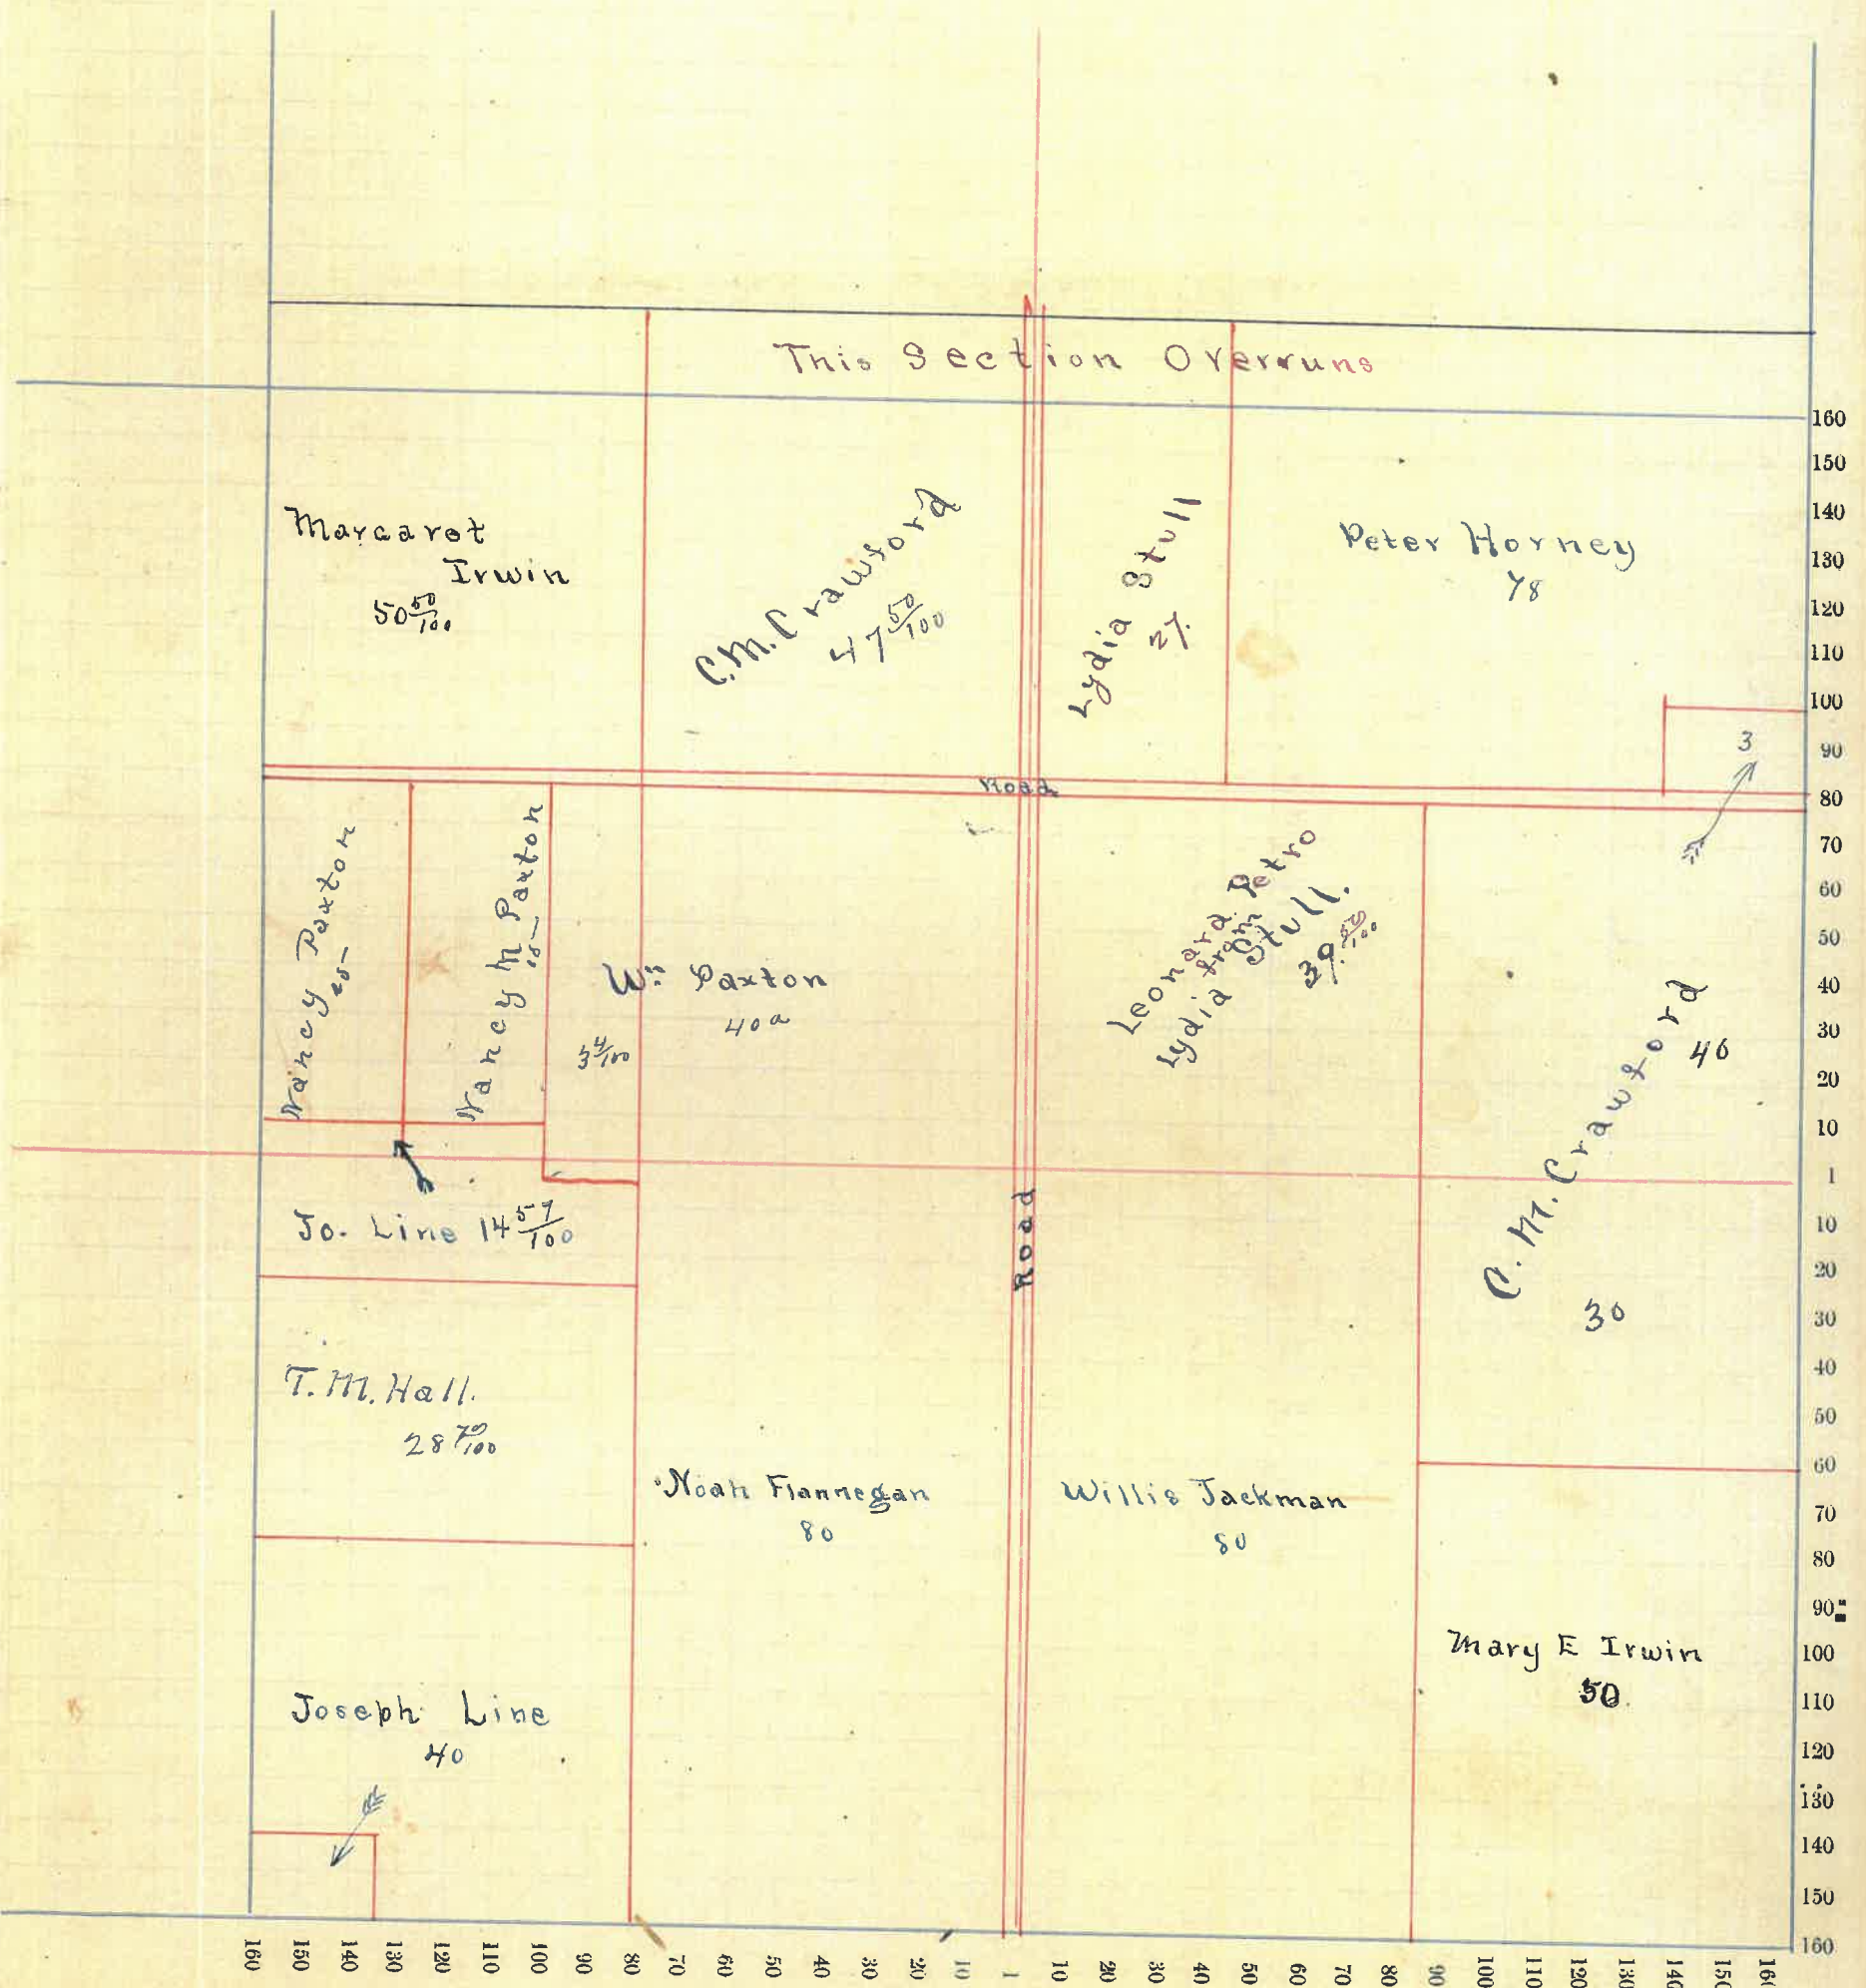 This Section Overruns
Margaret
Irwin
50 50/100
C.M. Crawford
47 50/100
Lydia Stull
27.
Peter Horney
78
3
Road
Nancy Paxton
Nancy M Paxton
Wm Paxton
40 a
3 4/100
Leonard Petro
Lydia from
Stull.
39
C. M. Crawford
40
30
Jo. Line 14 57/100
Road
T. M. Hall.
28 70/100
Noah Flannegan
80
Willis Jackman
80
Mary E Irwin
50.
Joseph Line
40
160
150
140
130
120
110
100
90
80
70
60
50
40
30
20
10
1
10
20
30
40
50
60
70
80
90
100
110
120
130
140
150
160
160 150 140 130 120 110 100 90 80 70 60 50 40 30 20 10 1 10 20 30 40 50 60 70 80 90 100 110 120 130 140 150 160